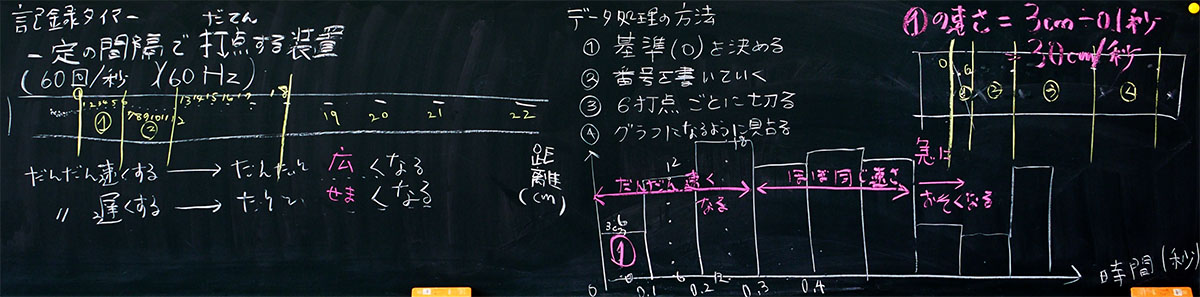 記録タイマー
だてん
一定の間隔で打点する装置
(60回/秒)(60Hz)
0 1 2 3 4 5 6
7 8 9 10 11 12
13 14 15 16 17 18
① ②
19 20 21 22
だんだん速くする → だんだん 広くなる
〃 遅くする → だんだん せまくなる
データ処理の方法
① 基準(0)を決める
② 番号を書いていく
③ 6打点ごとに切る
④ グラフになるように貼る
①の速さ = 3cm÷0.1秒
= 30cm/秒
0 6
① ② ③ ④
距離(cm)
だんだん速くなる
ほぼ同じ速さ
急におそくなる
12 18
6
3cm
①
0 6 12
0 0.1 0.2 0.3 0.4
時間(秒)